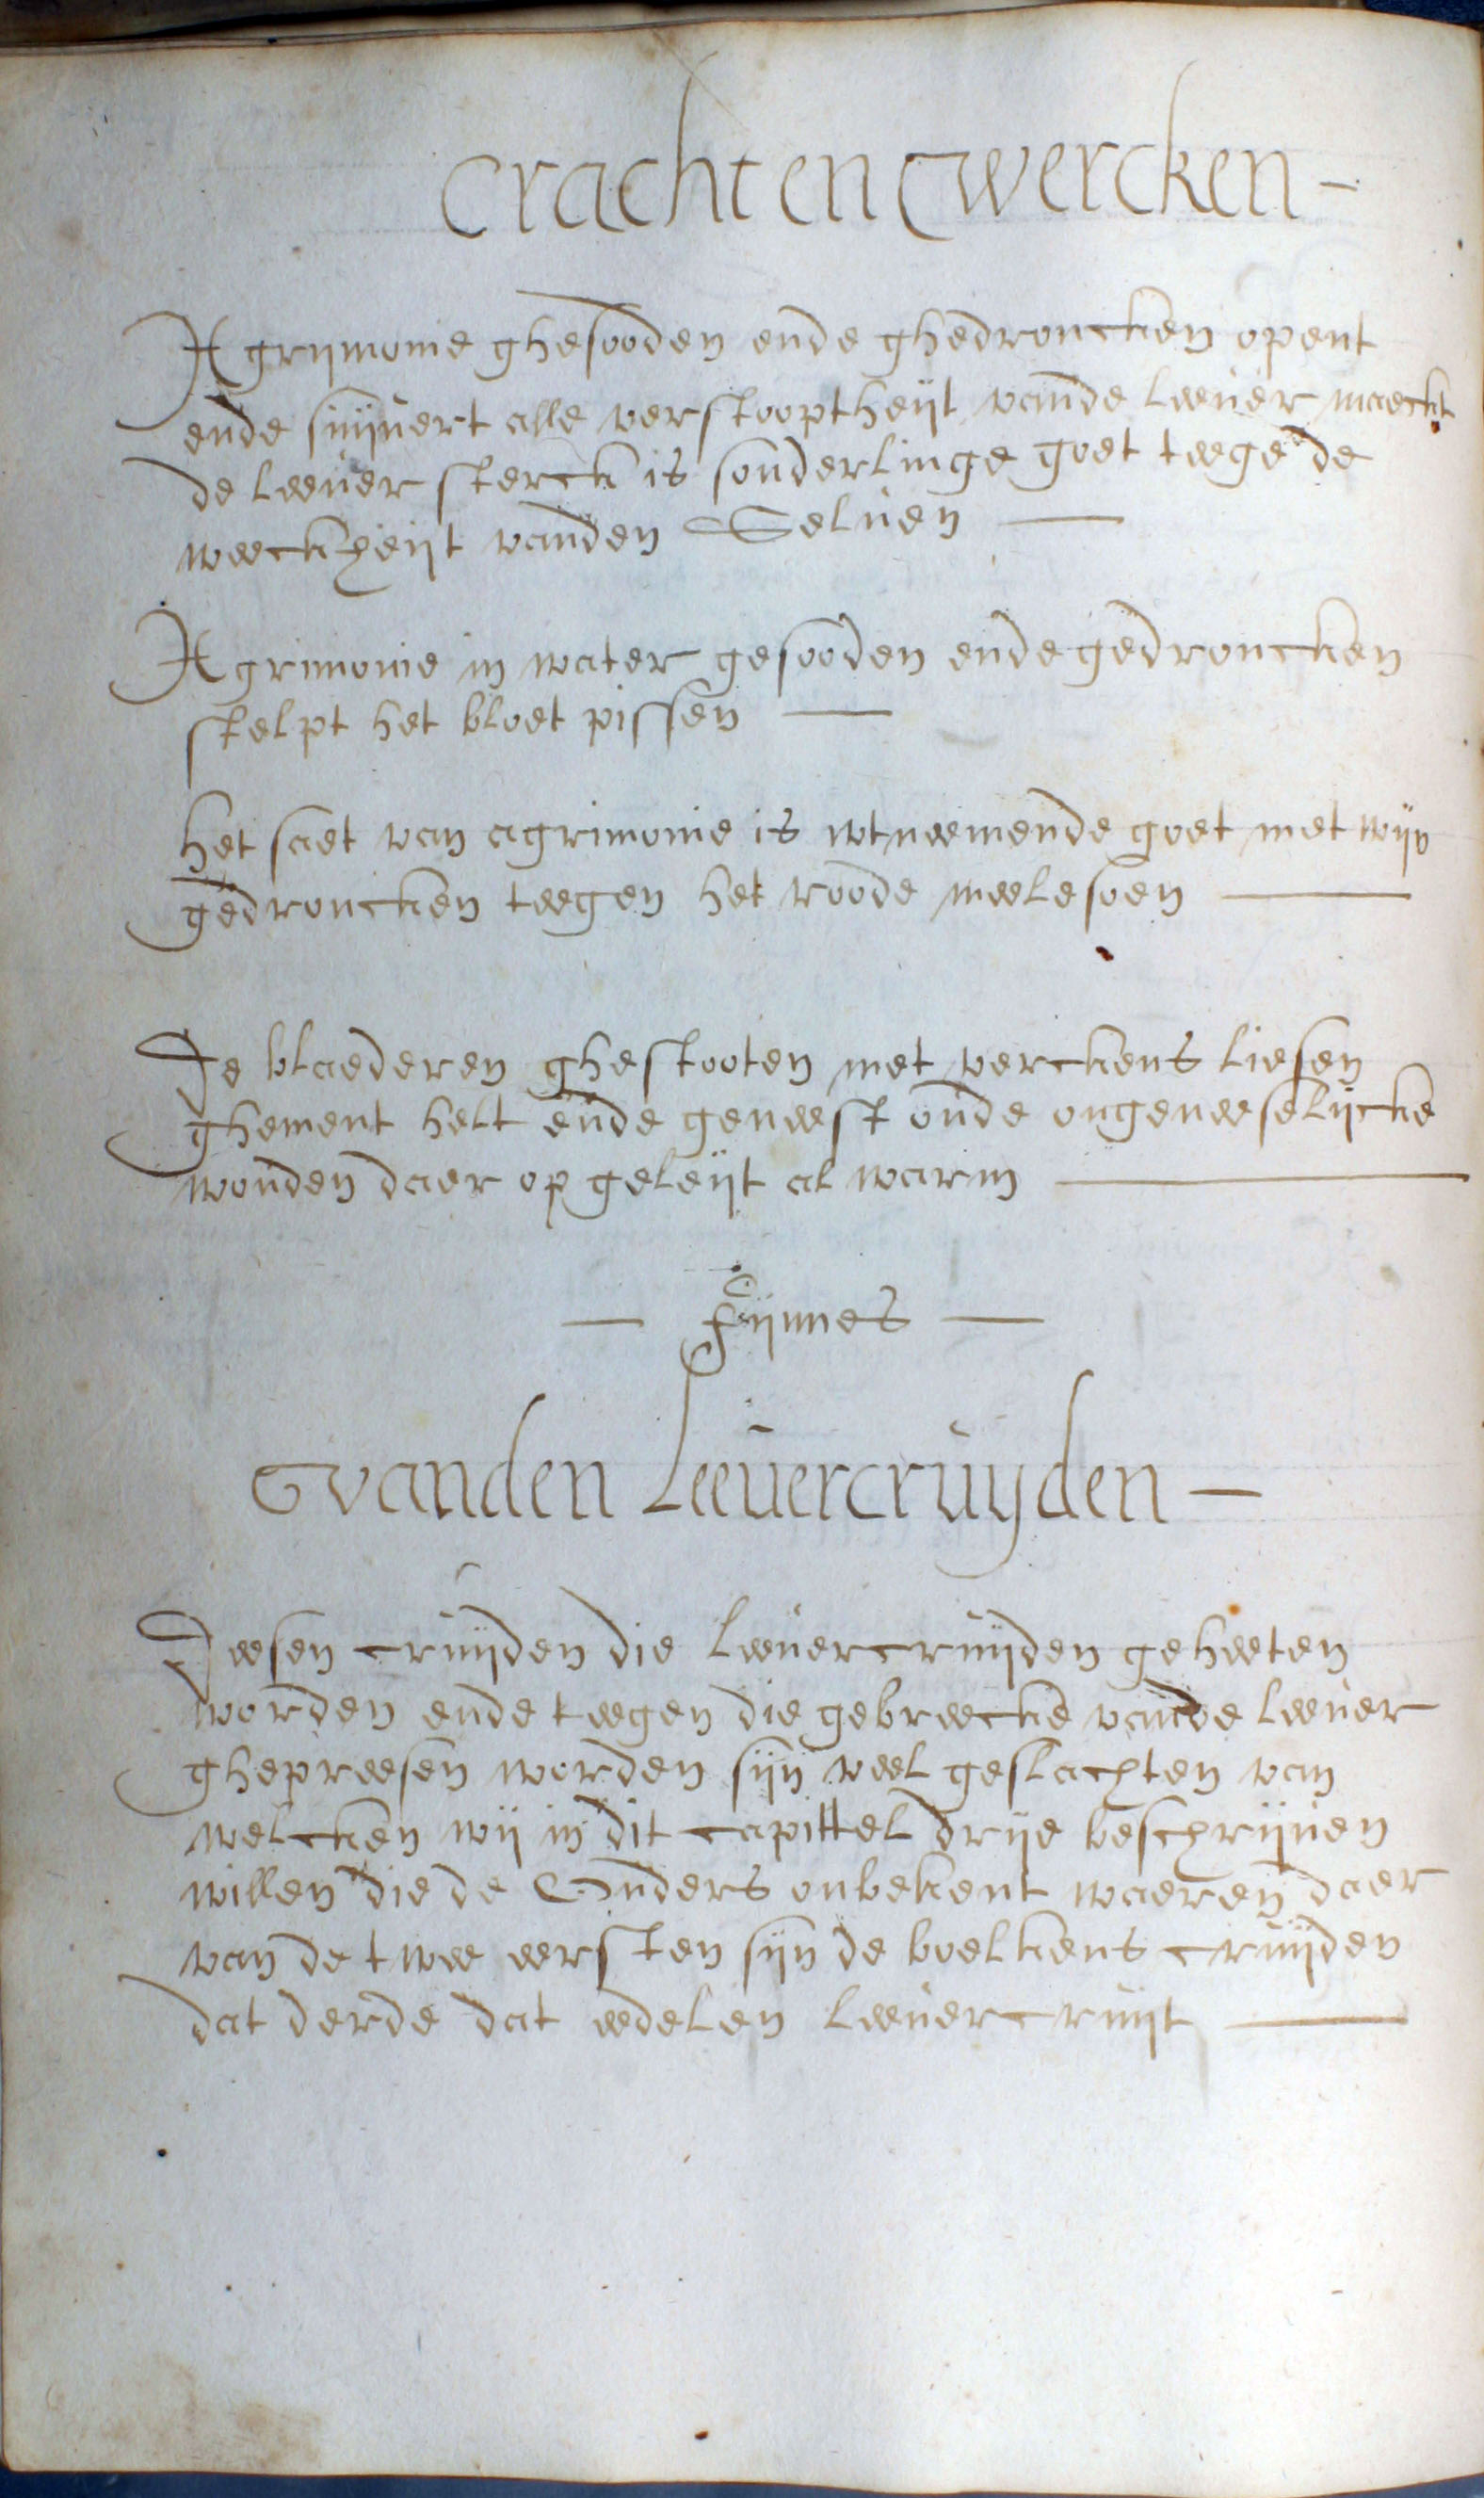 Cracht en Wercken -
Agrijmonie ghesooden ende ghedroncken opent
ende suijvert alle verstooptheijt vande leever maeckt
de leever sterck is sonderlinge goet teege de
weeckheijt vanden Selven —
Agrimonie in water gesooden ende gedroncken
stelpt het bloet pissen —
het saet van agrimonie is wtneemende goet met wijn
gedroncken teegen het roode meelesoen —
De blaederen ghestooten met verckens liesen
ghement helt ende geneest oude ongeneeselijcke
wonden daer op geleijt al warm —
— Fijnnes —
Vanden Leevercruyden —
Deesen cruijden die leevercruijden geheeten
worden ende teegen die gebreecke vande leever
ghepreesen worden sijn veel geslachten van
welcken wij in dit capittel drije beschrijven
willen die de Ouders onbekent waeren daer
van de twee eersten sijn de boelkens cruijden
dat derde dat eedelen leevercruijt —